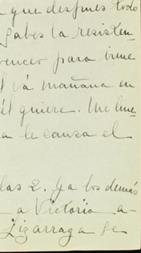 que despues todo
gabes la resisten-
vencer para irme
vá mañana en
él quiere. Me
a le causa el
las 2. Ya los demás
a Victoria a-
Lizarraga se